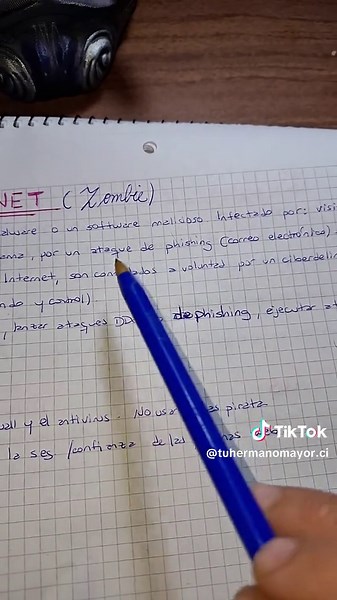 NET (Zombie)
o un software malicioso infectado por: visi
por un ataque de phishing (correo electrónico)
Internet, son controlados a voluntad por un ciberdelin
ndo y control)
, lanzar ataques DD de phishing, ejecutar at
all y el antivirus. No usar as pirata
la seg /confianza de las nas web
TikTok
@tuhermanomayor.ci